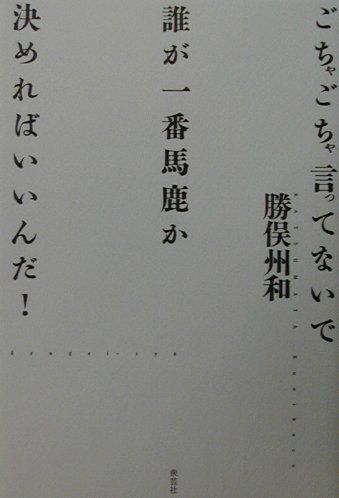 ごちゃごちゃ言ってないで
勝俣州和
KATSUMATA Kunikazu
誰が一番馬鹿か
決めればいいんだ！
衆芸社